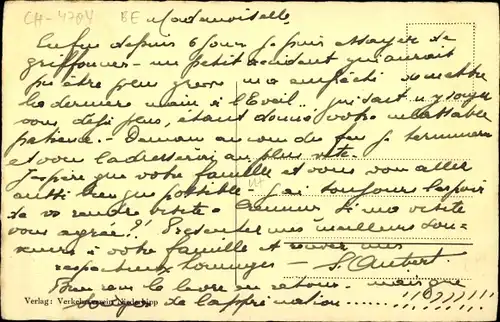 CH-4704 BE Mademoiselle,
Enfin depuis 6 jours je puis essayer de
griffonner - un petit accident qui aurait
pu être plus grave m'a empêché de mettre
la dernière main à l'Eveil.. qui sait, n'y songez
vous déjà plus, étant donné votre
patience - Demain au coin du feu je terminerai
et vous l'adresserai au plus vite -
J'espère que votre famille et vous vous allez
aussi bien que possible - j'ai toujours l'espoir
de vous rendre visite - si ma visite
vous agrée?! Présenter mes meilleurs
à votre famille et recevez mes
respectueux hommages - S. Aubert.
la livre en retour - mais que
de l'appréciation ..... !!!!!!!!
Verlag: Verkehrsverein Niederbipp